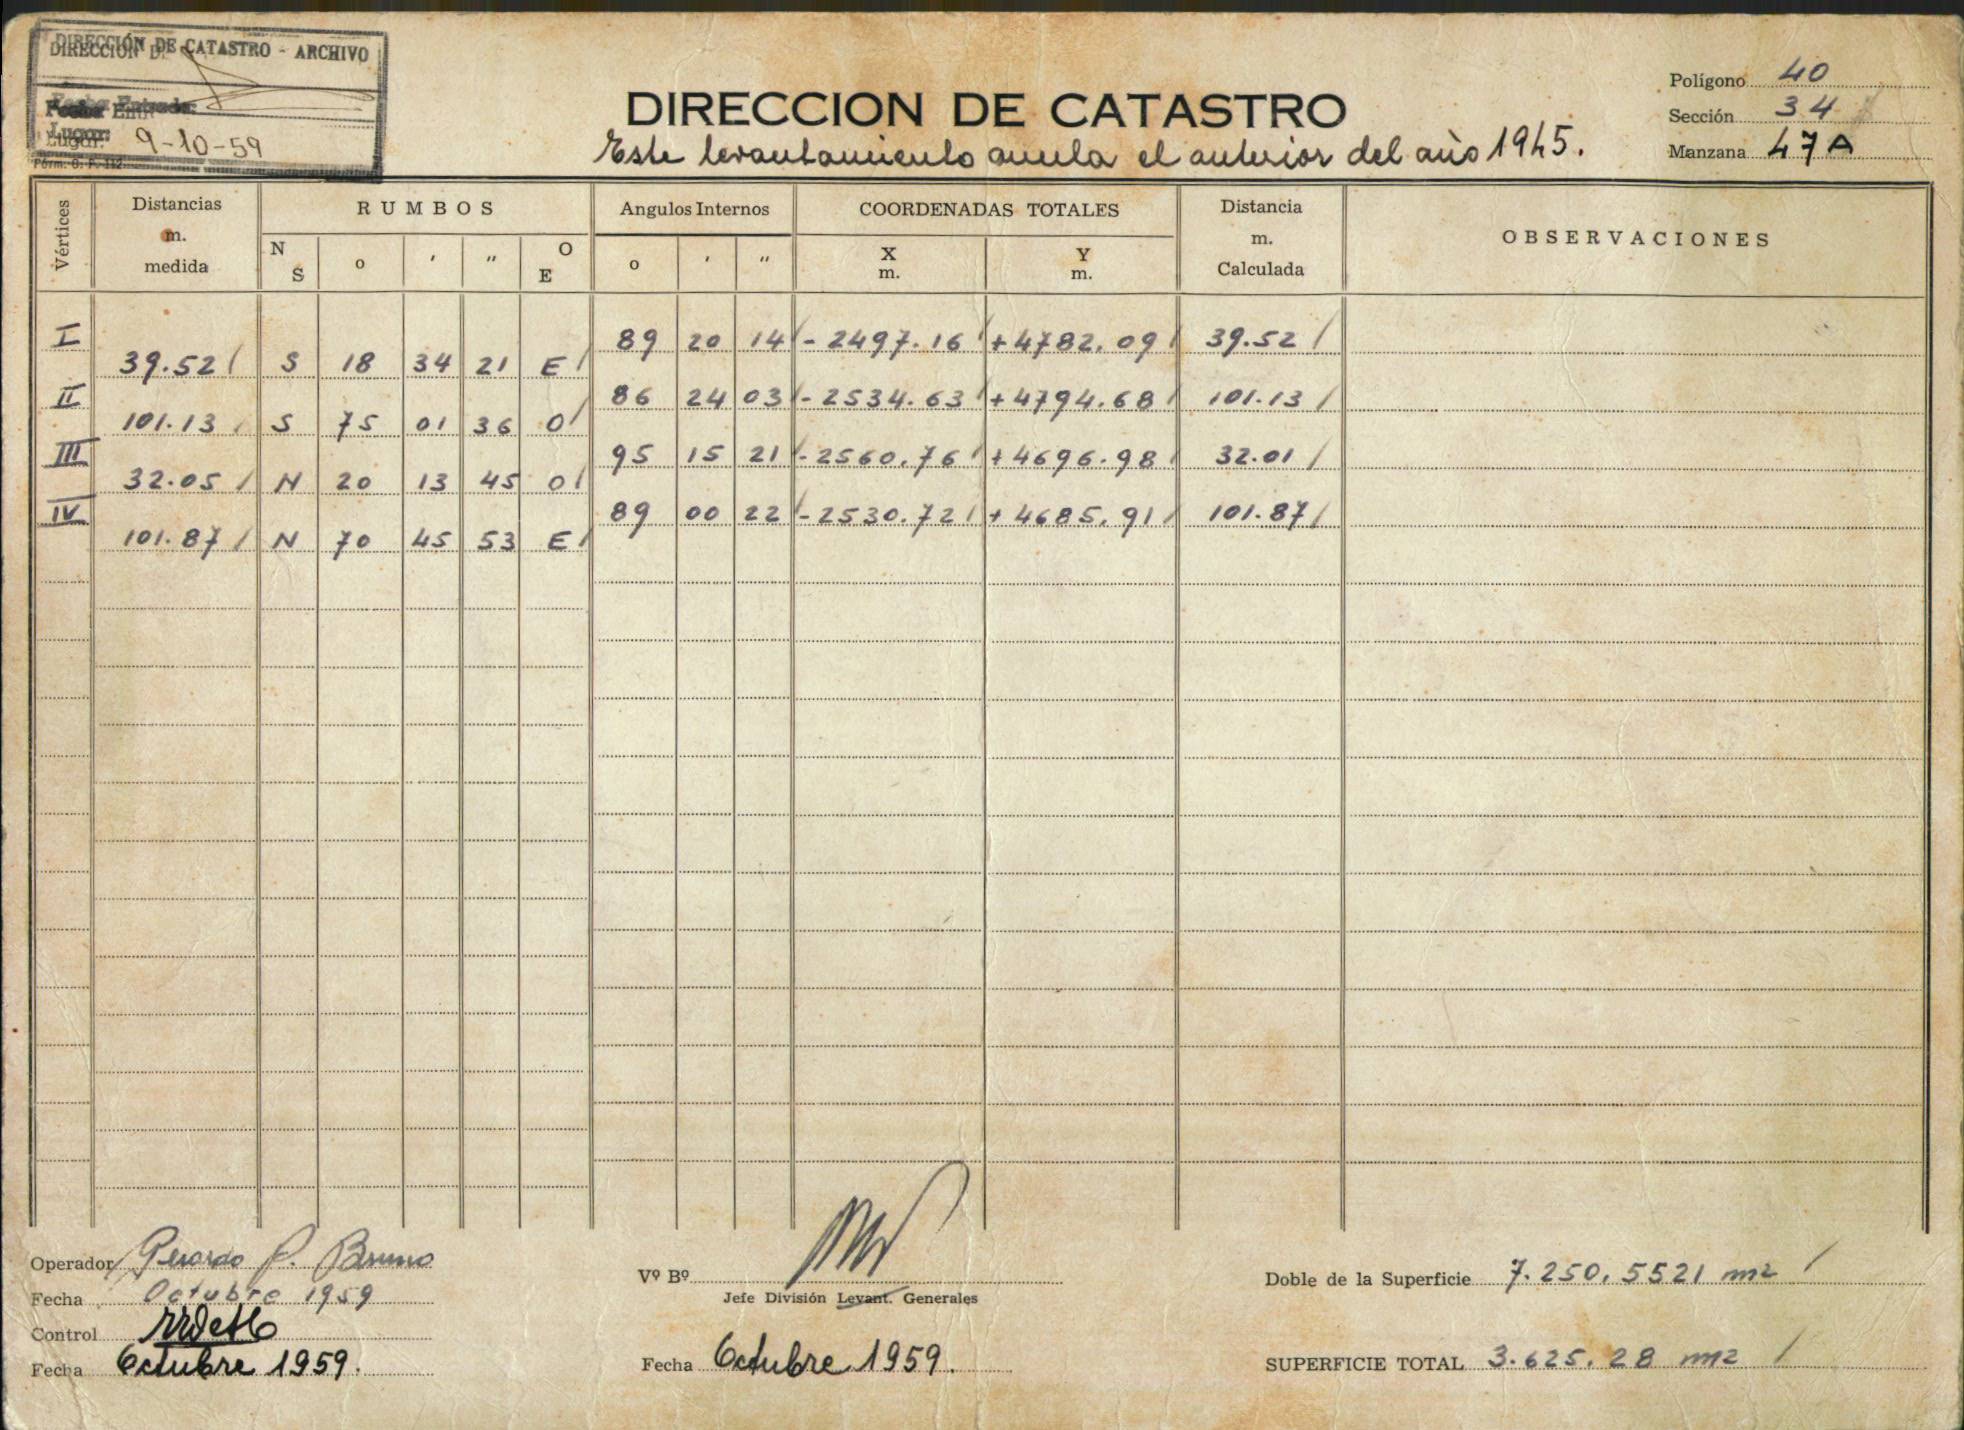 DIRECCIÓN DE CATASTRO - ARCHIVO
Fecha Entrada:
Lugar: 9-10-59
Fórm. C. F. 112
DIRECCION DE CATASTRO
Este levantamiento anula el anterior del año 1945.
Polígono 40
Sección 34
Manzana 47A
Vértices Distancias m. medida RUMBOS Angulos Internos COORDENADAS TOTALES Distancia m. Calculada OBSERVACIONES
N S o ' " O E o ' " X m. Y m.
I 89 20 14 - 2497.16 + 4782.09 39.52
39.52 S 18 34 21 E
II 86 24 03 - 2534.63 + 4794.68 101.13
101.13 S 75 01 36 O
III 95 15 21 - 2560.76 + 4696.98 32.01
32.05 N 20 13 45 O
IV 89 00 22 - 2530.72 + 4685.91 101.87
101.87 N 70 45 53 E
Operador Gerardo P. Bruno
Fecha Octubre 1959
Control
Fecha Octubre 1959.
Vº Bº
Jefe División Levant. Generales
Fecha Octubre 1959.
Doble de la Superficie 7.250,5521 m2
SUPERFICIE TOTAL 3.625.28 m2